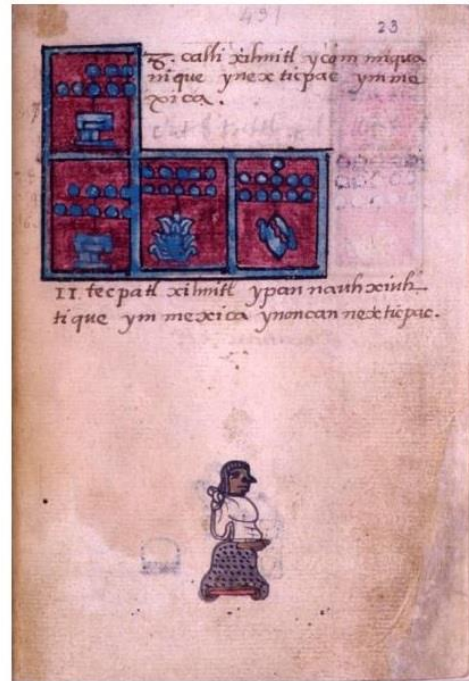 23
calli xihuitl
nique ynexticpac ymme
xica.
II. tecpatl xihuitl ypan nauhxiuh-
tique ym mexica ynoncan nexticpac.